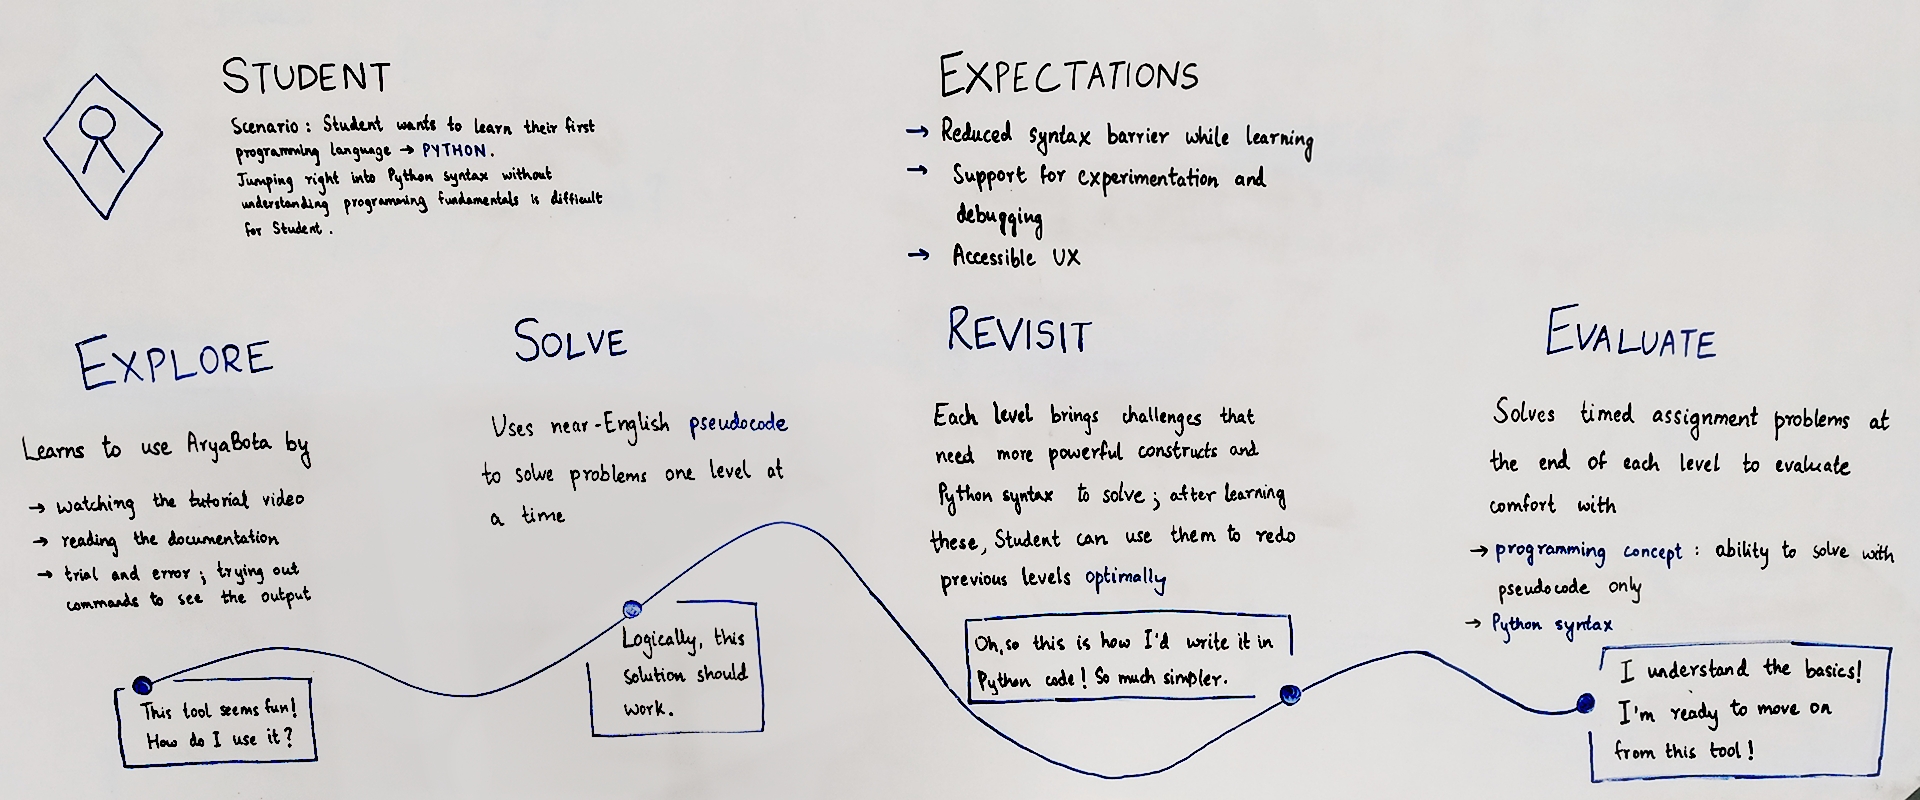 STUDENT
Scenario : Student wants to learn their first
programming language → PYTHON.
Jumping right into Python syntax without
understanding programming fundamentals is difficult
for Student.
EXPECTATIONS
→ Reduced syntax barrier while learning
→ Support for experimentation and
debugging
→ Accessible UX
EXPLORE
Learns to use AryaBota by
→ watching the tutorial video
→ reading the documentation
→ trial and error ; trying out
commands to see the output
This tool seems fun!
How do I use it?
SOLVE
Uses near-English pseudocode
to solve problems one level at
a time
Logically, this
solution should
work.
REVISIT
Each level brings challenges that
need more powerful constructs and
Python syntax to solve ; after learning
these, Student can use them to redo
previous levels optimally
Oh, so this is how I'd write it in
Python code! So much simpler.
EVALUATE
Solves timed assignment problems at
the end of each level to evaluate
comfort with
→ programming concept : ability to solve with
pseudocode only
→ Python syntax
I understand the basics!
I'm ready to move on
from this tool!